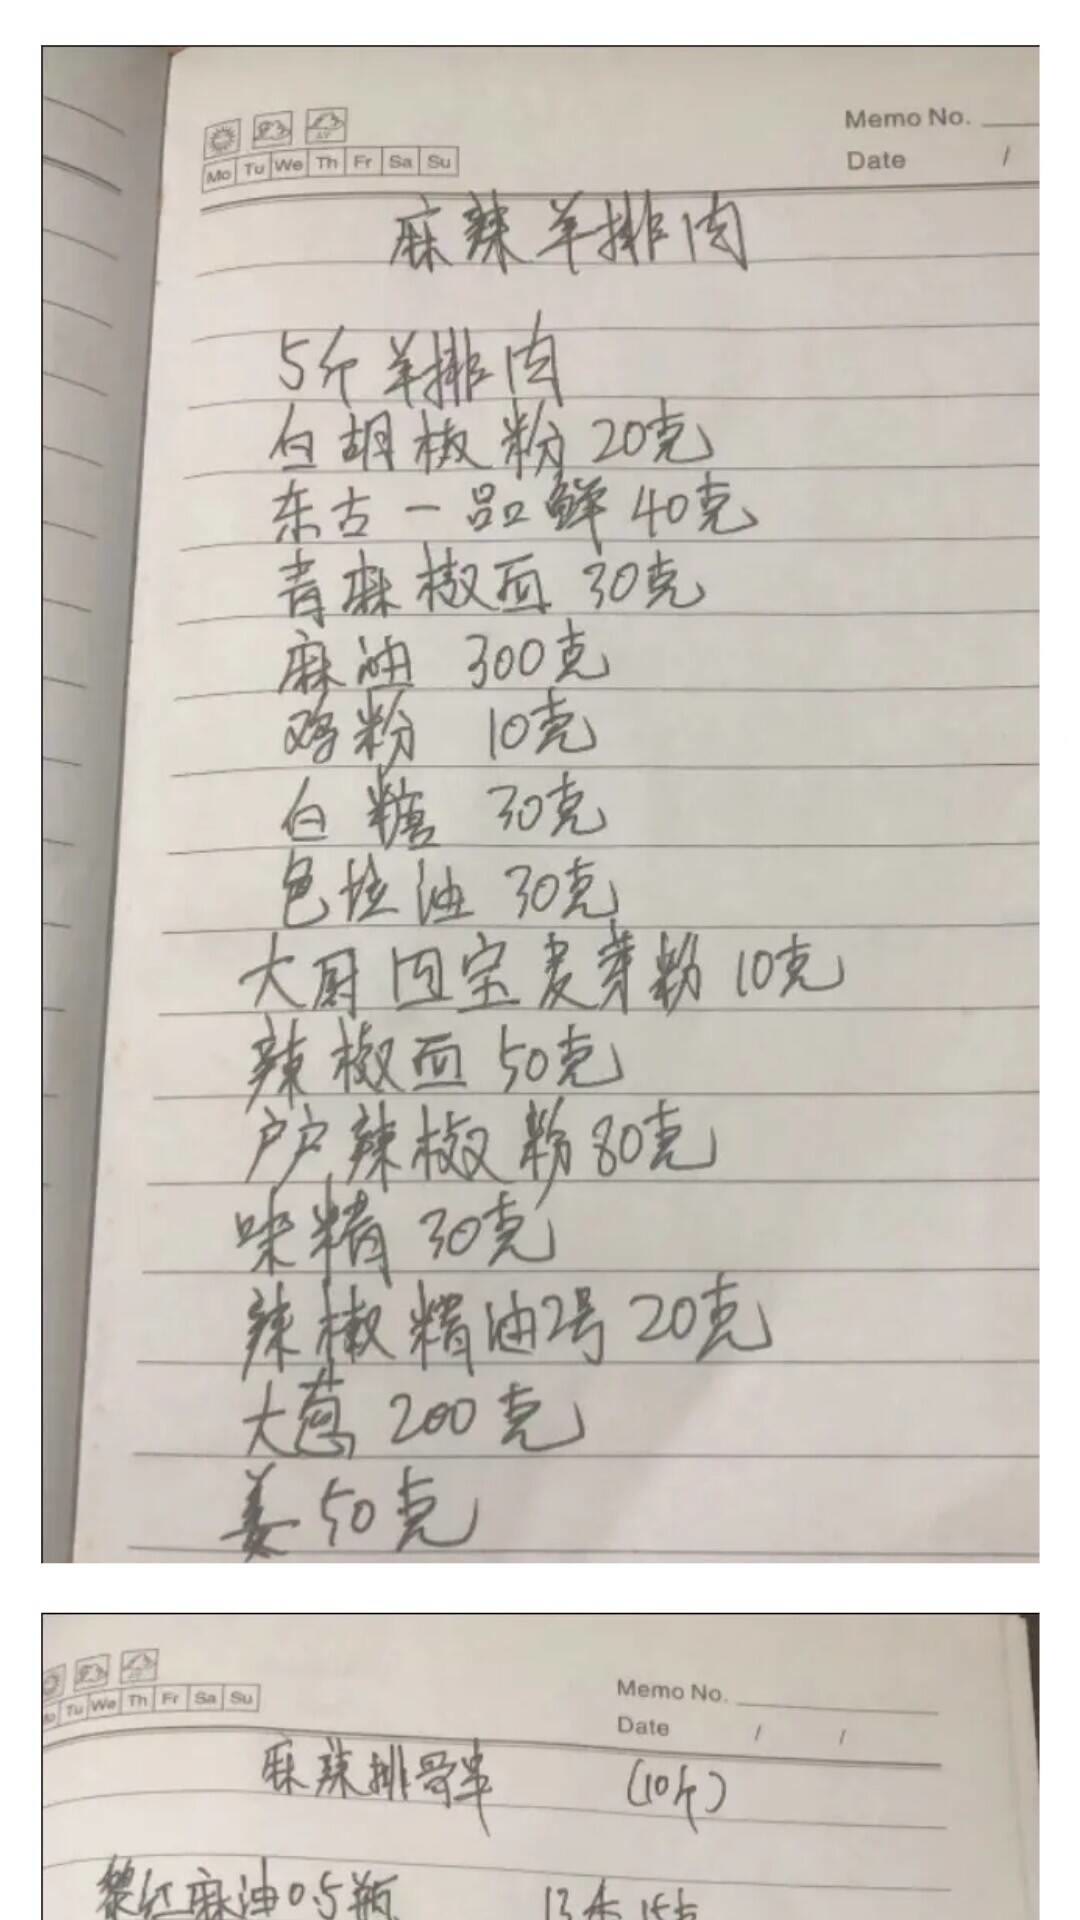 Mo Tu We Th Fr Sa Su
Memo No.
Date /
麻辣羊排肉
5斤羊排肉
白胡椒粉 20克
东古一品鲜 40克
青麻椒面 30克
麻油 300克
鸡粉 10克
白糖 30克
色拉油 30克
大厨四宝麦芽粉 10克
辣椒面 50克
户户辣椒粉 80克
味精 30克
辣椒精油2号 20克
大葱 200克
姜 50克
Tu We Th Fr Sa Su
Memo No.
Date / /
麻辣排骨串 (10斤)
黎红麻油0.5瓶